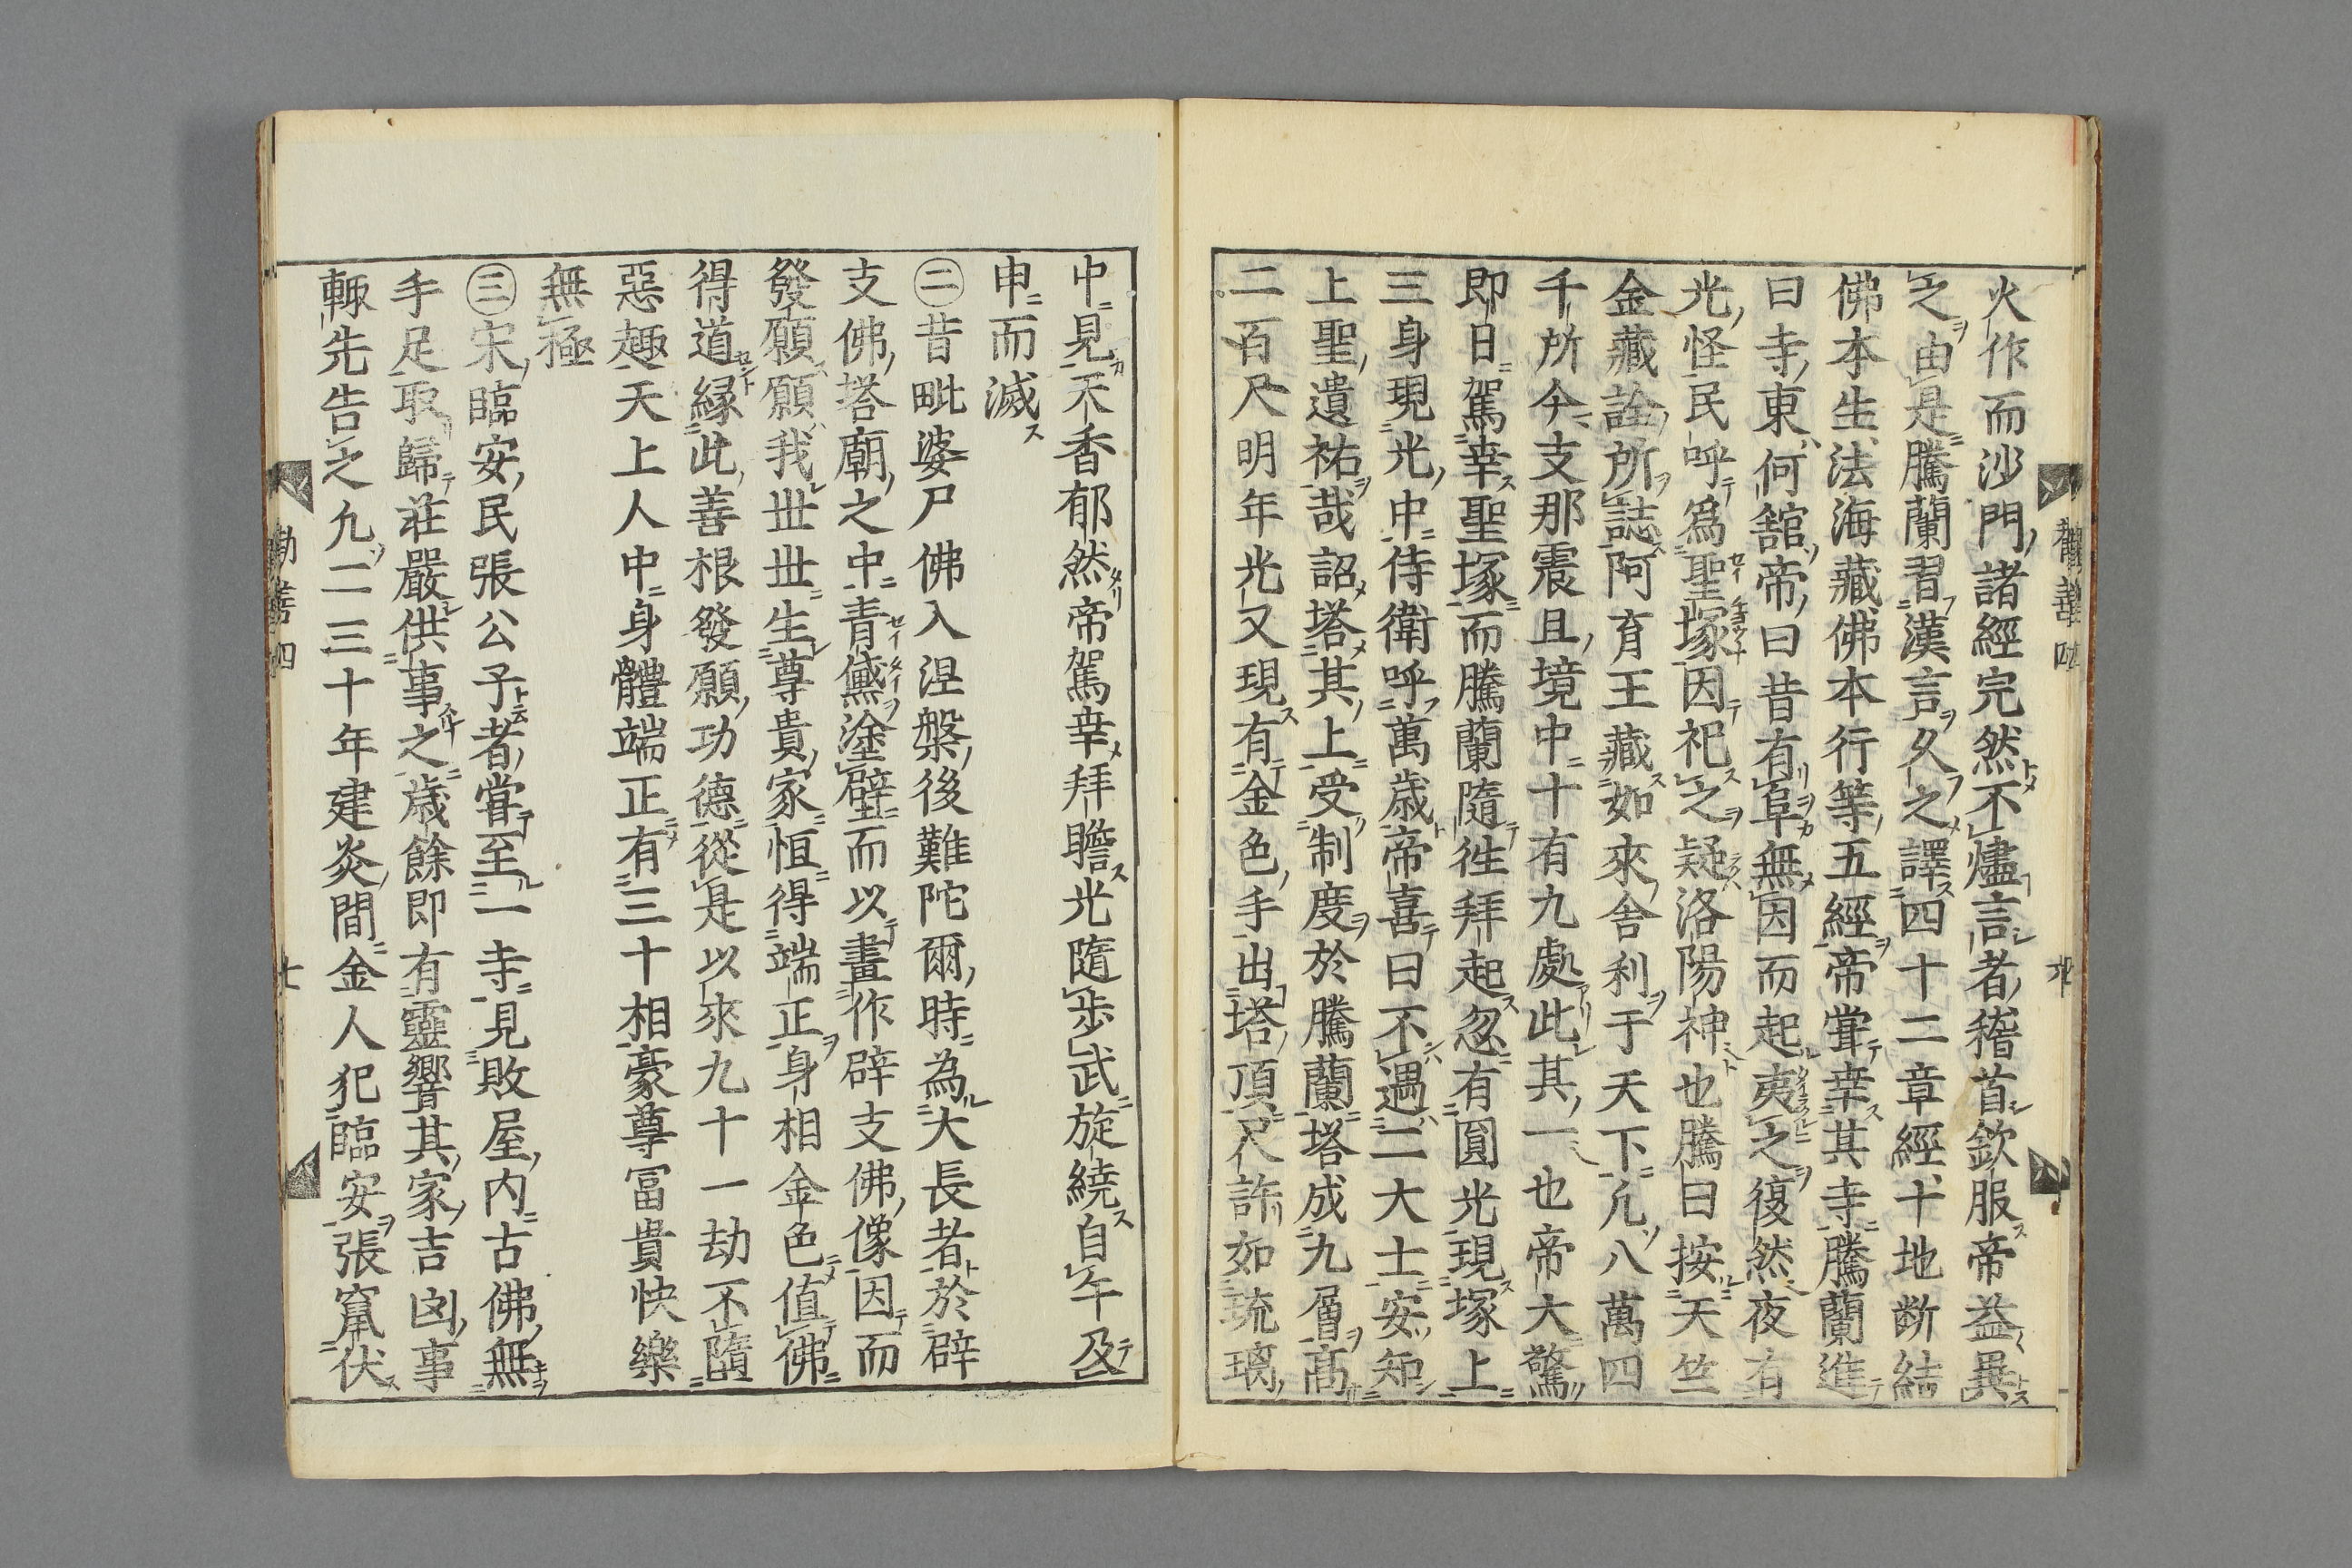 火作而沙門諸經完然不燼言者稽首欽服帝益異
之由是騰蘭習漢言久之譯四十二章經十地断結
佛本生法海藏佛本行等五經帝甞幸其寺騰蘭進
曰寺東何舘帝曰昔有阜無因而起夷之復然夜有
光怪民呼爲聖塚因祀之疑洛陽神也騰曰按天竺
金藏詮所誌阿育王藏如來舍利于天下凢八萬四
千所今支那震且境中十有九處此其一也帝大驚
即日駕幸聖塚而騰蘭隨徃拜起忽有圓光現塚上
三身現光中侍衛呼萬歳帝喜曰不遇二大士安知
上聖遺祐哉詔塔其上受制度於騰蘭塔成九層高
二百尺明年光又現有金色手出塔頂尺許如琉璃
中見天香郁然帝駕幸拜瞻光隨步武旋繞自午及
申而滅
㊁昔毗婆尸佛入涅槃後難陀爾時為大長者於辟
支佛塔廟之中青黛塗壁而以畫作辟支佛像因而
發願願我丗丗生尊貴家恒得端正身相金色值佛
得道縁此善根發願功德從是以來九十一劫不墮
惡趣天上人中身體端正有三十相豪尊冨貴快樂
無極
㊂宋臨安民張公子者甞至一寺見敗屋内古佛無
手足取歸莊嚴供事之歳餘即有靈響其家吉凶事
輙先告之凢二三十年建炎間金人犯臨安張竄伏
勸善四
七